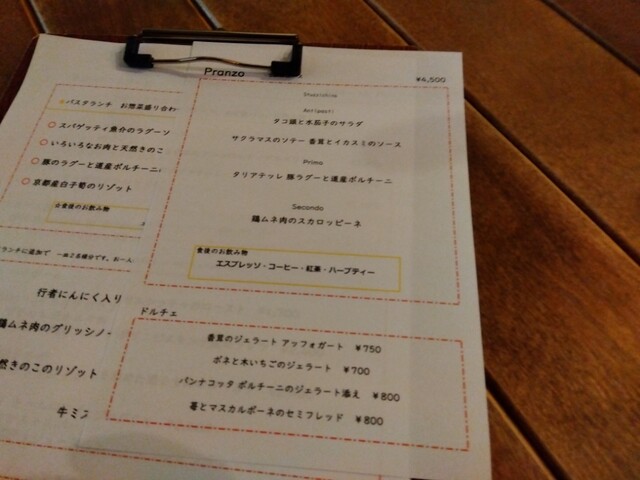 Pranzo ¥4,500
Stuzzichino
Antipasti
タコ頭と水茄子のサラダ
サクラマスのソテー 香茸とイカスミのソース
Primo
タリアテッレ 豚ラグーと道産ポルチーニ
Secondo
鶏ムネ肉のスカロッピーネ
食後のお飲み物
エスプレッソ・コーヒー・紅茶・ハーブティー
ドルチェ
香茸のジェラート アッフォガート ¥750
ボネと木いちごのジェラート ¥700
パンナコッタ ポルチーニのジェラート添え ¥800
苺とマスカルポーネのセミフレッド ¥800
パスタランチ お惣菜盛り合わ
スパゲッティ魚介のラグーソ
いろいろなお肉と天然きのこ
豚のラグーと道産ポルチーニ
京都産白子筍のリゾット
食後のお飲み物
ランチに追加で 一皿2名様分です。お一人
行者にんにく入り
鶏ムネ肉のグリッシノ
然きのこのリゾット
牛ミス